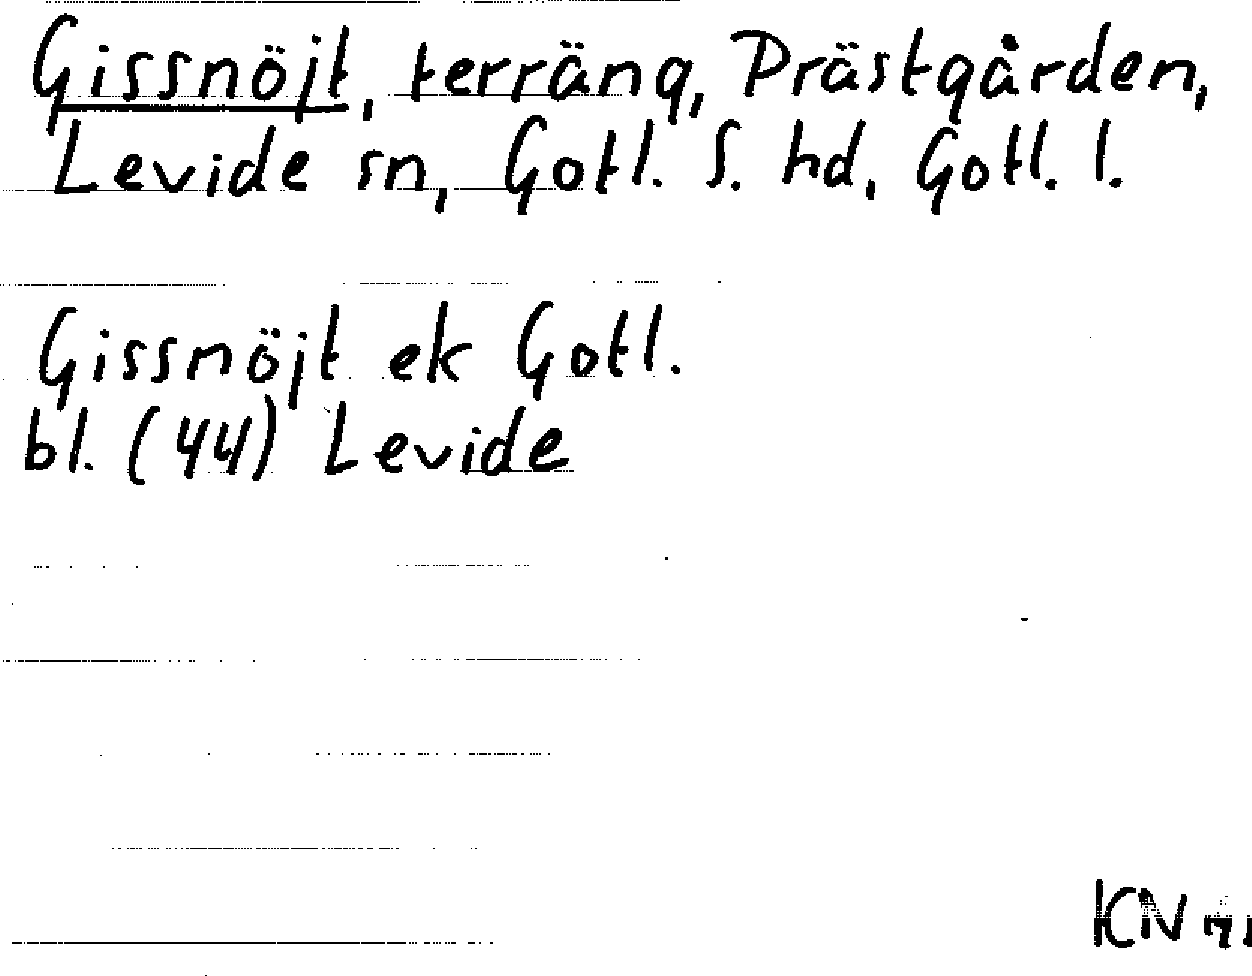 Gissnöjt, terräng, Prästgården,
Levide sn, Gotl. S. hd, Gotl. l.
Gissnöjt ek Gotl.
bl. (44) Levide
KN